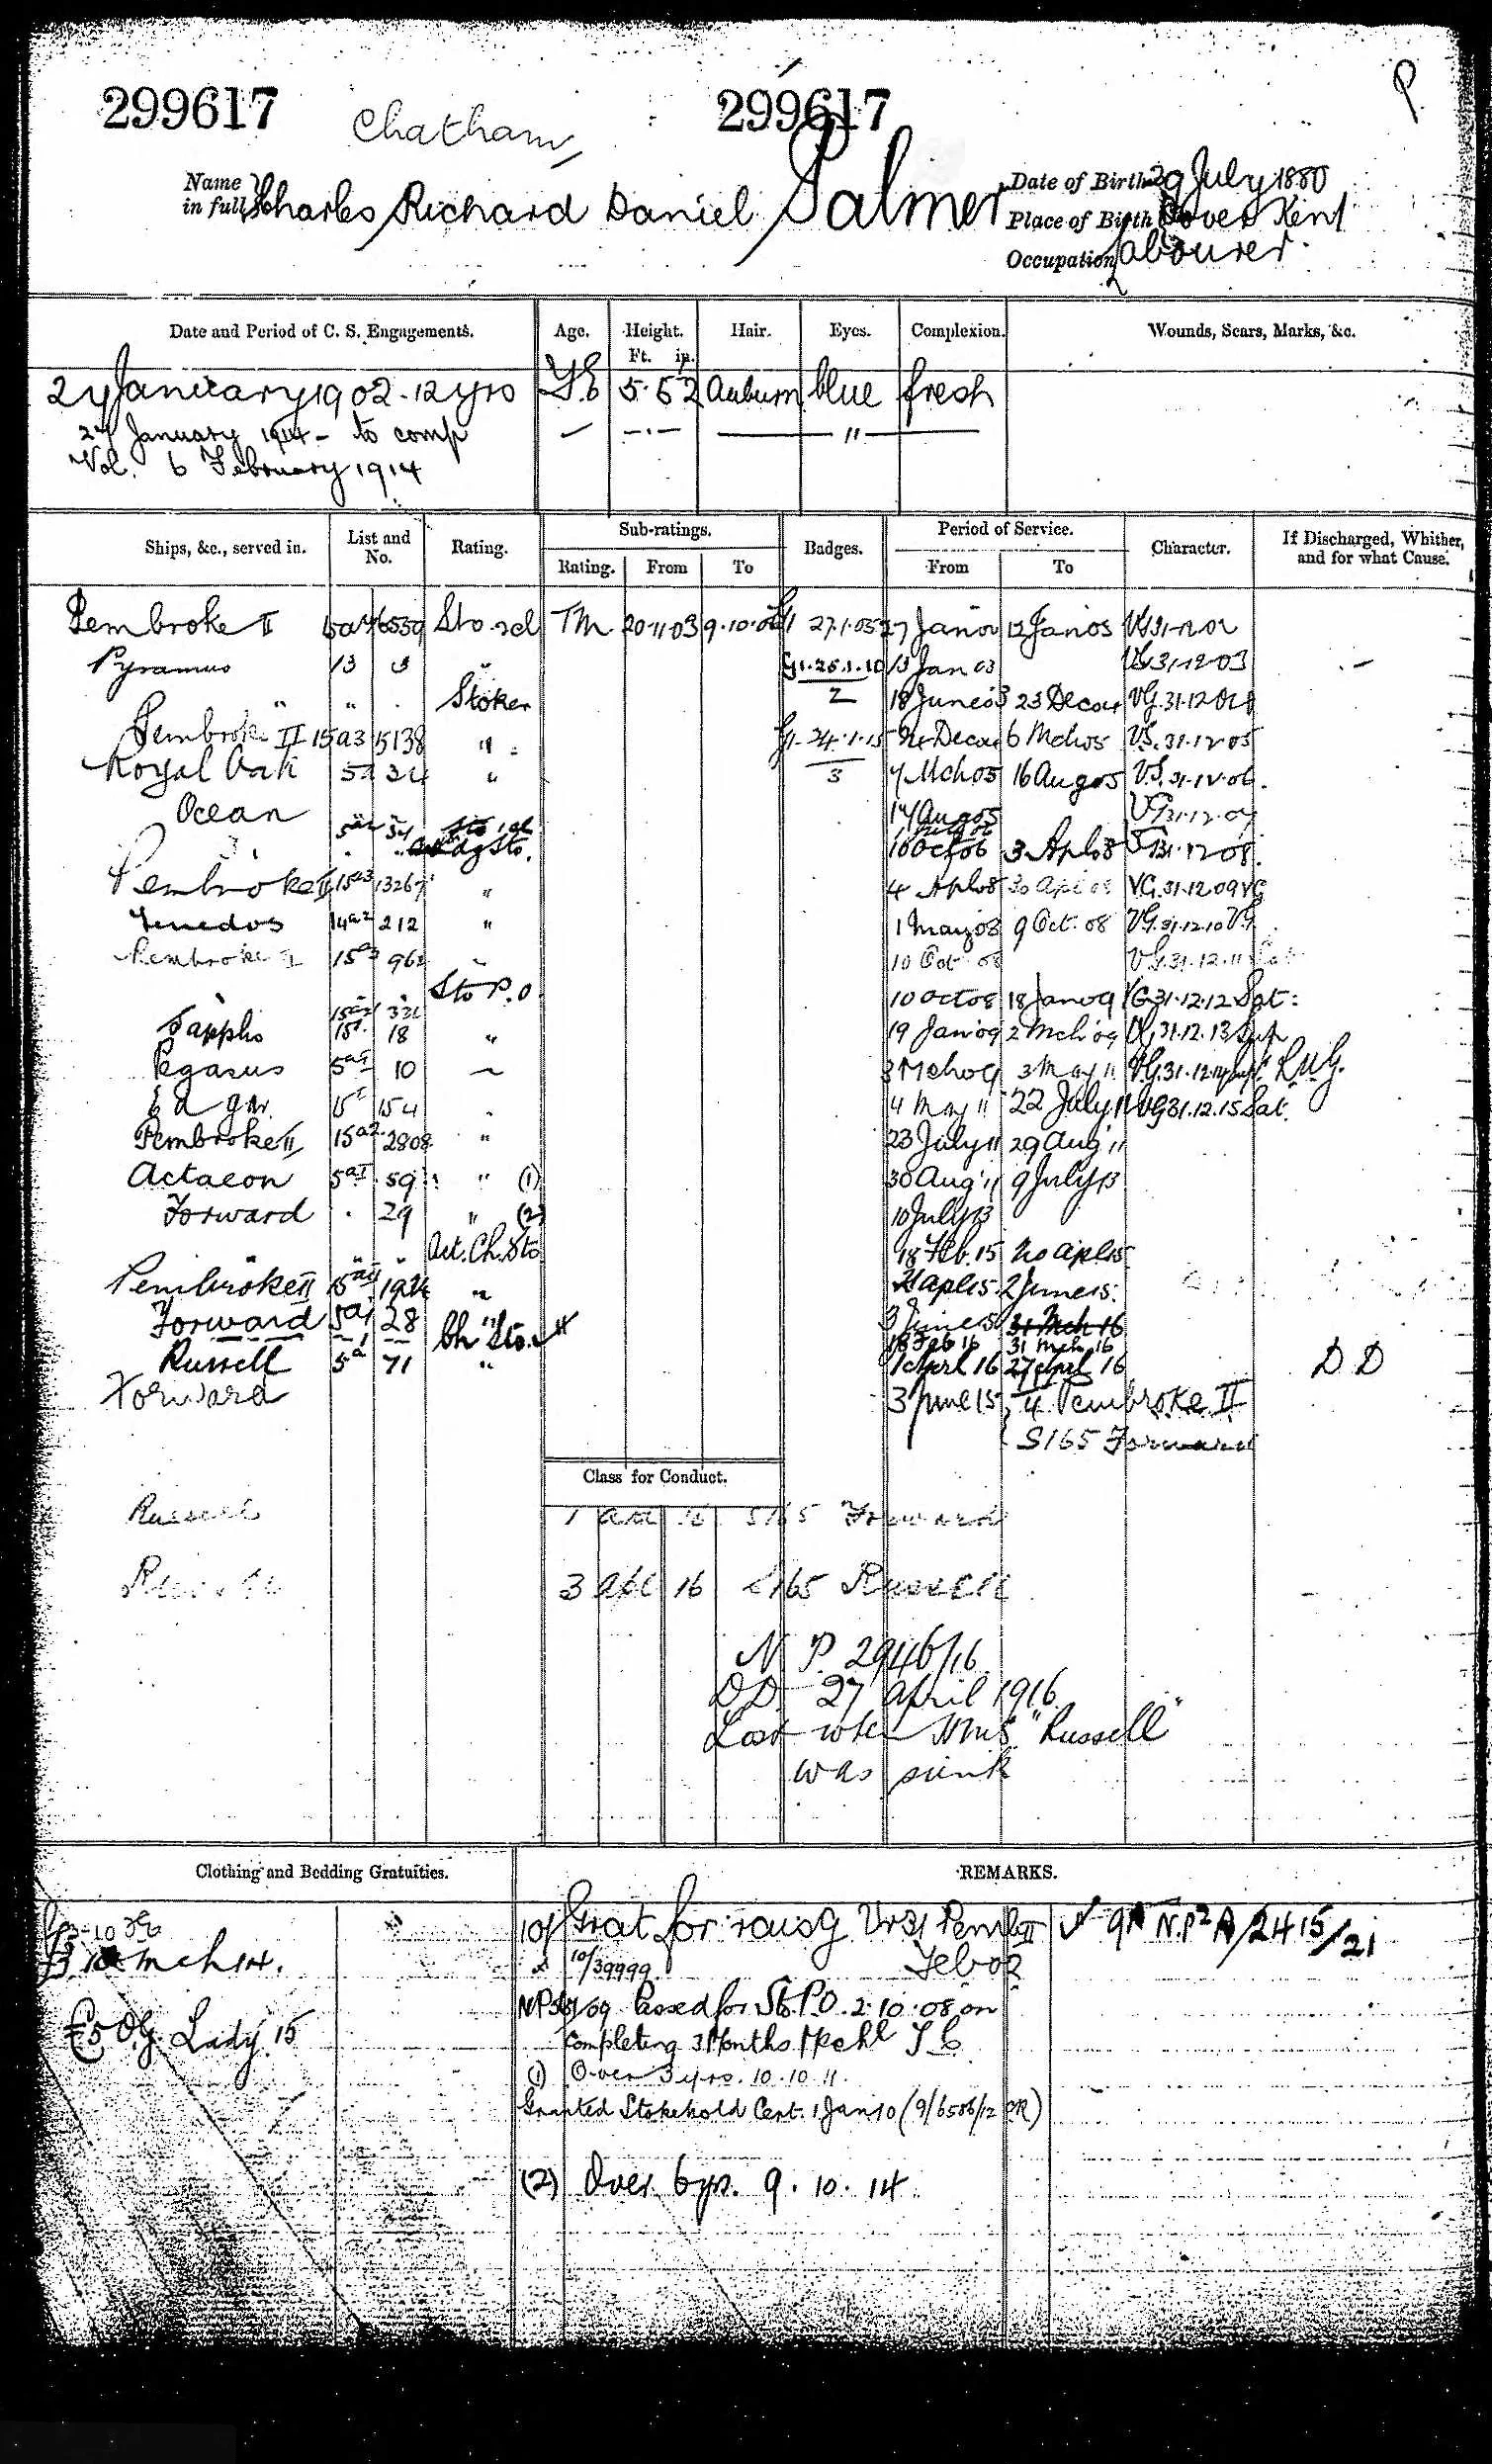 299617 Chatham 299617 P.
Name in full Charles Richard Daniel Palmer
Date of Birth 29 July 1880
Place of Birth Dover Kent
Occupation Labourer.
Date and Period of C. S. Engagements. Age. Height. Ft. in. Hair. Eyes. Complexion. Wounds, Scars, Marks, &c.
27 January 1902 - 12 yrs 5. Auburn blue fresh
27 January 1914 - to comp — — — " —
Vol. 6 February 1914
Ships, &c., served in. List and No. Rating. Sub-ratings. Badges. Period of Service. Character. If Discharged, Whither, and for what Cause.
Rating. From To From To
Pembroke II Sto. 2cl T.M. 20.11.03 27.1.05 VG 31.12.02
Pyramus 13 3 " G1.25.1.10 13 Jan 03 VG 31.12.03
" " Stoker 2 18 June 03 23 Dec 04 VG. 31.12.04
Pembroke II 15a3 5138 " G1. 24.1.15 24 Dec 04 6 Mch 05 VG. 31.12.05
Royal Oak 5a 34 " 3 7 Mch 05 16 Aug 05 VG. 31.12.06.
Ocean 17 Aug 05 VG 31.12.07
Ag Sto. 10 Oct 06 3 Apl 08 VG 31.12.08.
Pembroke II 15a3 13267 " 4 Apl 08 30 Apl 08 VG. 31.12.09 VG
Tenedos 14a2 212 " 1 May 08 9 Oct. 08 VG. 31.12.10 VG
Pembroke II 15a3 " 10 Oct 08 VG. 31.12.11
" " Sto P.O. 10 Oct 08 18 Jan 09 VG 31.12.12 Sat:
Sappho 15a. 18 " 19 Jan 09 2 Mch 09 VG. 31.12.13 Sup
Pegasus 5a1 10 " 3 Mch 09 3 May 11 VG. 31.12.14 Sup. R.M.G.
Edgar 154 " 4 May 11 22 July 11 VG 31.12.15 Sat.
Pembroke II 15a2 2808 " 23 July 11 29 Aug 11
Actaeon 5a1 59 " (1) 30 Aug 11 9 July 13
Forward . 29 " (2) 10 July 13
" " Act. Ch. Sto 18 Feb. 15 20 Apl 15
Pembroke II 1924 " 21 Apl 15 2 June 15.
Forward 5a1 28 " 3 June 15 31 Mch 16
Ch Sto. 18 Feb 16 31 Mch 16
Russell 5a1 71 " 1 April 16 27 April 16 D D
Forward 3 June 15, 4 Pembroke II
S165 Forward
Class for Conduct.
Russell 1 16 S165 Forward
Russell 3 16 S165 Russell
N P. 2946/16.
DD. 27 April 1916.
Lost when HMS "Russell"
was sunk
Clothing and Bedding Gratuities. REMARKS.
Mch 14.
£5 OG. 15
10/ Grat for Pemb II
10/39999 Feb 02
Passed for Sto. P.O. 2.10.08 on
completing 3 Months
(1) Over 3 yrs. 10.10.11.
Granted Stokehold Cert. 1 Jan 10 (9/6506/12 CR)
(2) Over 6 yrs. 9.10.14.
N.P2 A/2415/21